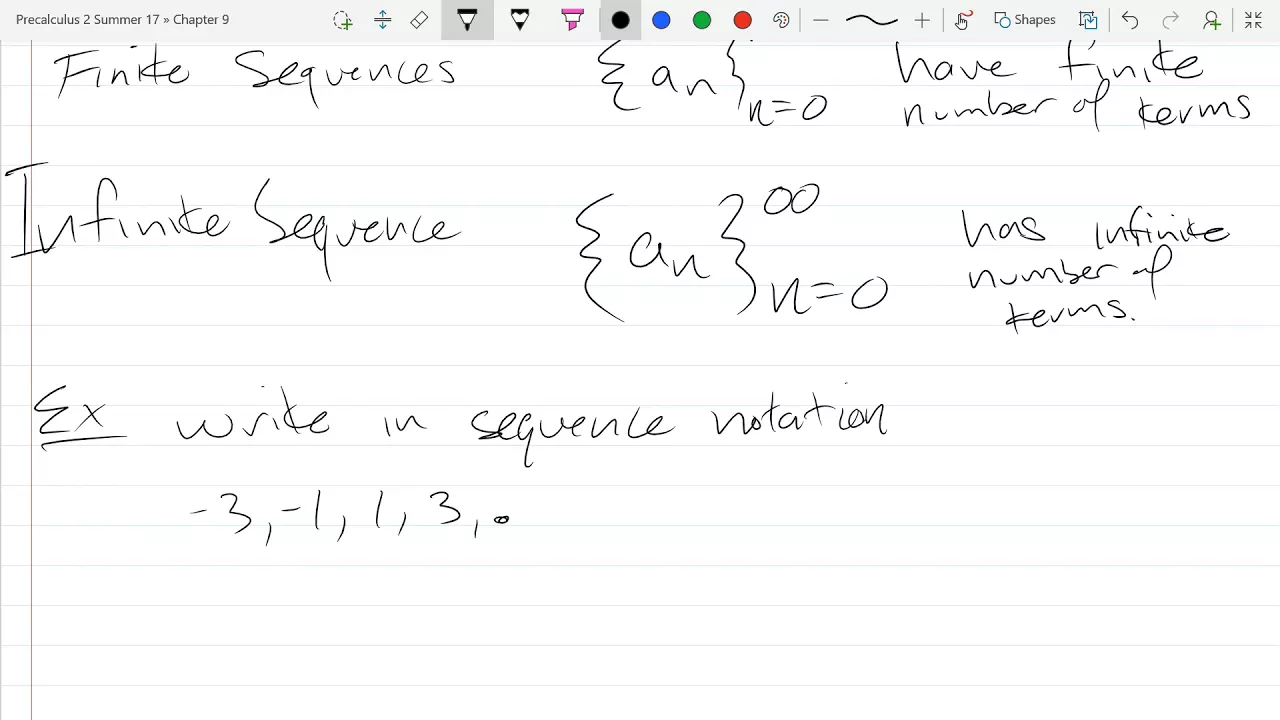 Precalculus 2 Summer 17 » Chapter 9
Shapes
Finite Sequences {aₙ}ₙ₌₀ have finite
number of terms
Infinite Sequence {aₙ}ₙ₌₀^∞ has infinite
number of
terms.
Ex write in sequence notation
-3, -1, 1, 3, .